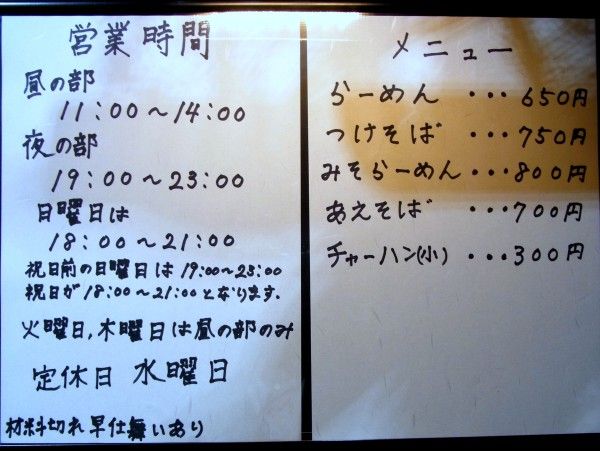 営業時間
昼の部
11:00〜14:00
夜の部
19:00〜23:00
日曜日は
18:00〜21:00
祝日前の日曜日は19:00〜23:00
祝日が18:00〜21:00となります.
火曜日,木曜日は昼の部のみ
定休日 水曜日
材料切れ早仕舞いあり
メニュー
らーめん ・・・650円
つけそば ・・・750円
みそらーめん・・・800円
あえそば ・・・700円
チャーハン(小) ・・・300円